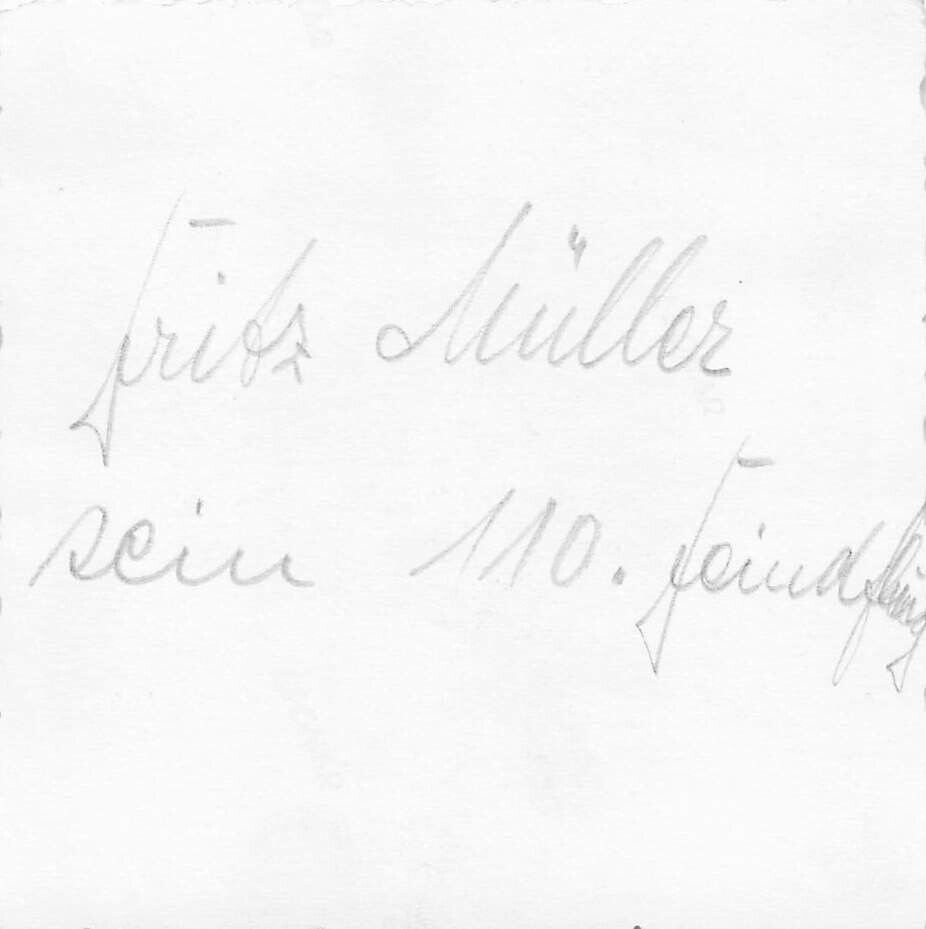 Fritz Müller
sein 110. Feindflug